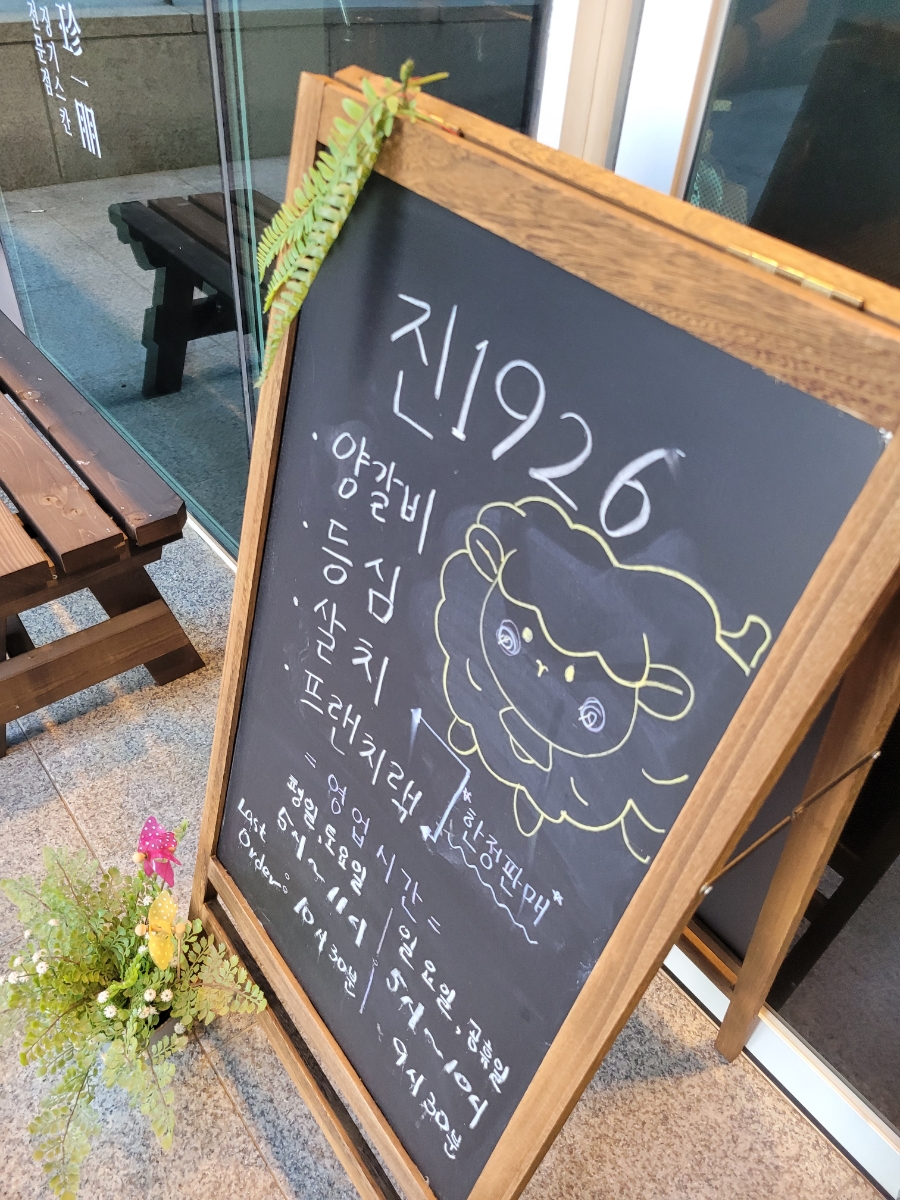 珍一朋
징기스칸
전문점
진1926
· 양갈비
· 등심
· 살치
· 프랜치랙
*한정판매*
= 영업시간 =
평일, 토요일
5시~11시
Last Order。 10시30분
일요일, 공휴일
5시~10시
9시30분